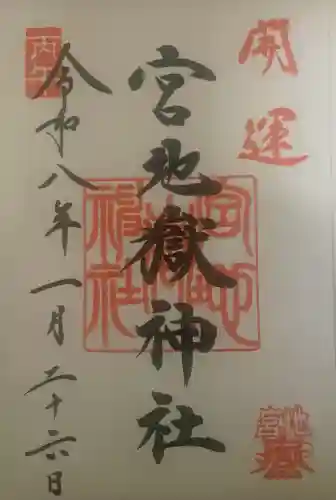 開運
宮地嶽神社
宮地嶽神社
宮地嶽
丙午
令和八年一月二十六日